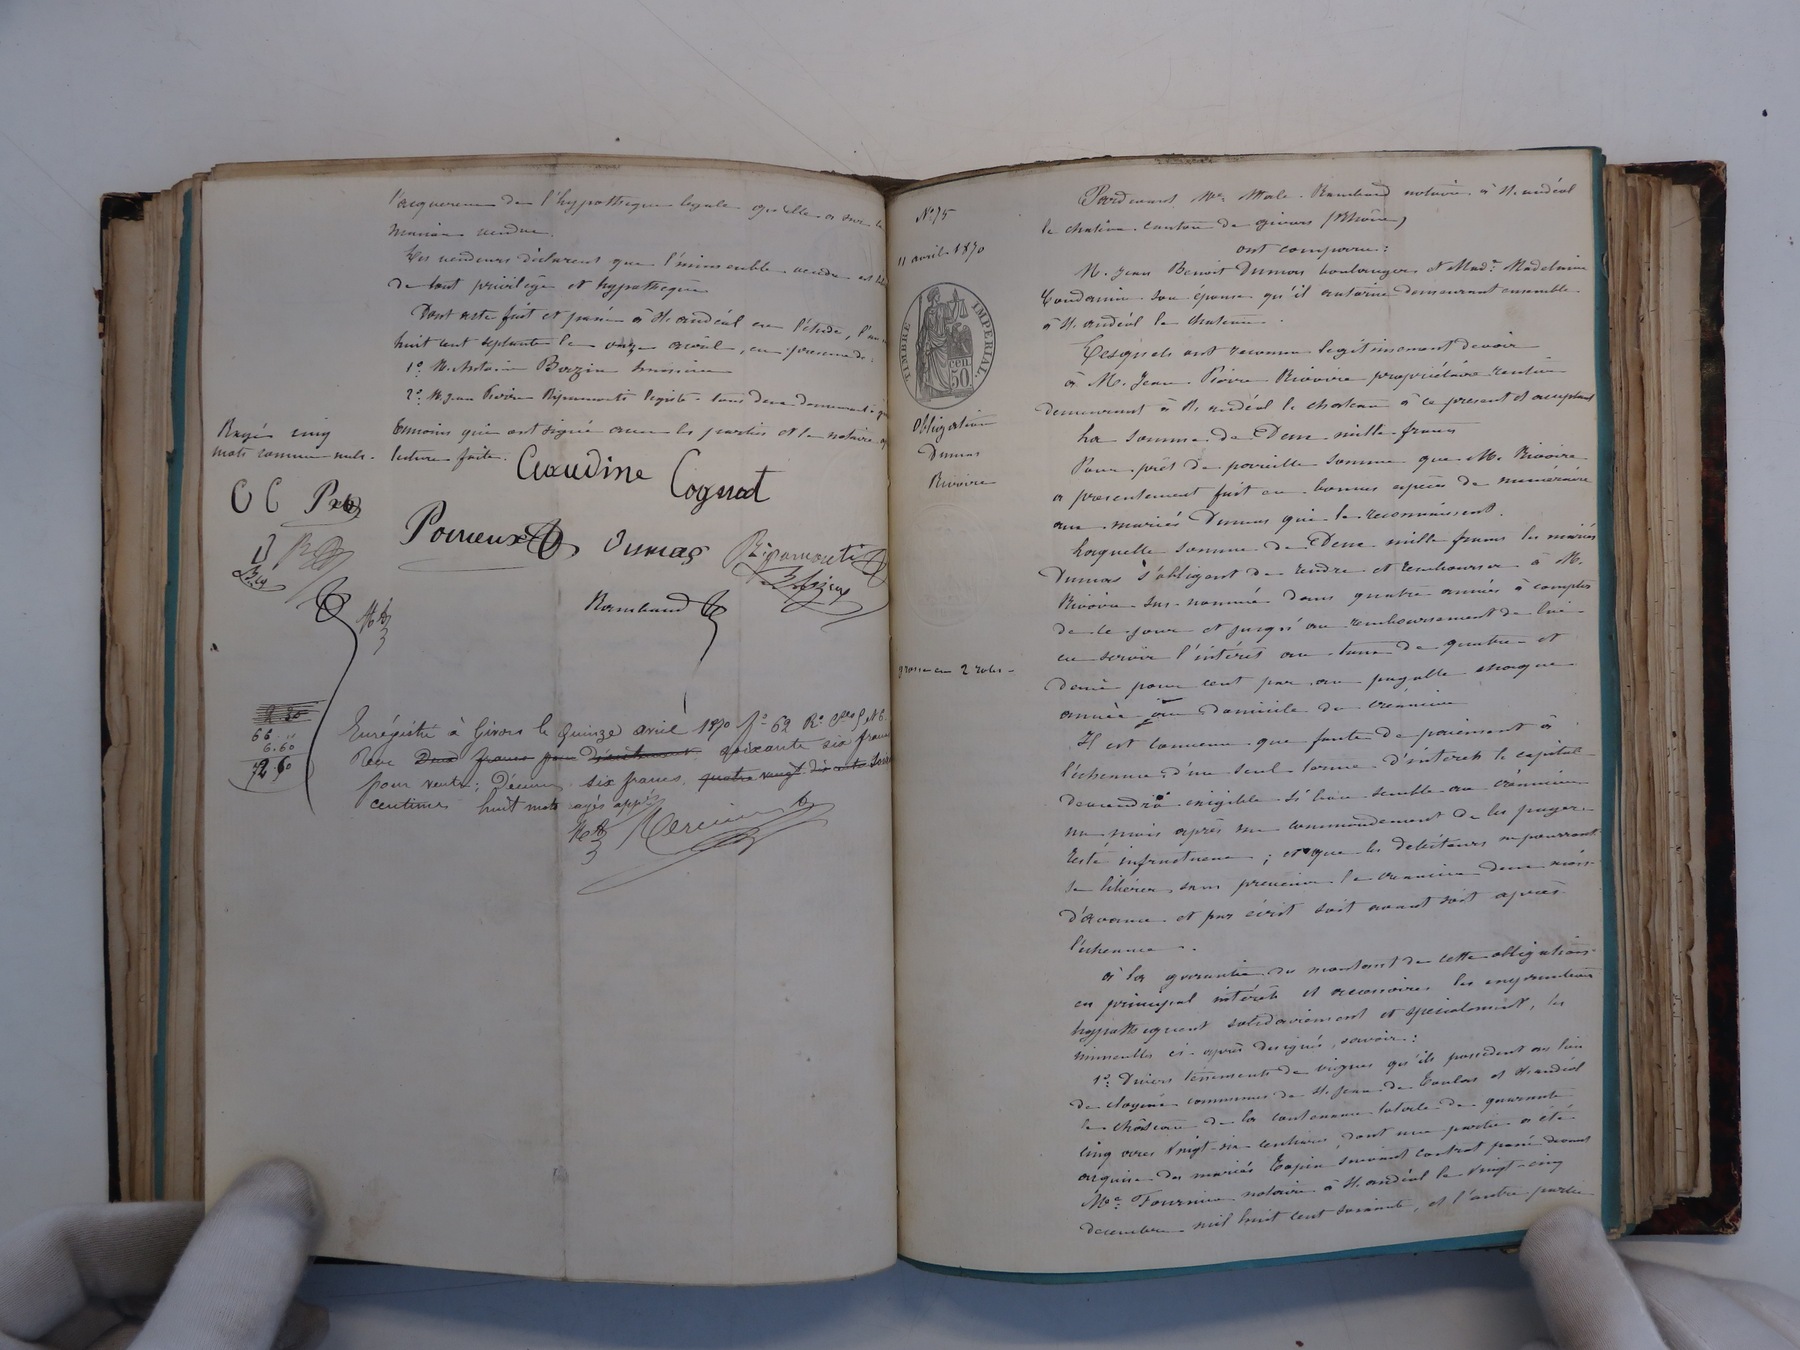 l'acquereur de l'hypothèque légale qu'elle a sur la
maison vendue.
Les vendeurs déclarent que l'immeuble vendu est
de tout privilège et hypothèque
Dont acte fait et passé à St andéol en l'étude, l'an
huit cent septante le onze avril, en presence de:
1° M. Antoine Bazin
2° M. Jean Pierre Ripamonti légiste tous deux demeurant
témoins qui ont signé avec les parties et le notaire
lecture faite.
Rayés cinq
mots comme nuls.
Claudine Cognat
C C
Dumas Ripamonti
Rambaud
66 "
6.60
72.60
Enregistré à Givors le quinze avril 1870 f° 62 R°
Reçu Deux francs pour soixante six francs
pour vente; Décime six francs,
centimes huit mots rayés
N° 75
11 avril 1870
TIMBRE IMPERIAL
50 cen
Obligation
Dumas
Rivoire
grosse en 2 roles
Pardevant Me Rambaud notaire à St andéol
le château canton de givors (Rhône)
ont comparu:
M. Jean Benoit Dumas boulanger et Made Madelaine
Condamin son épouse qu'il autorise demeurant ensemble
à St andéol le chateau.
Lesquels ont reconnu legitimement devoir
à M. Jean Pierre Rivoire propriétaire rentier
demeurant à St andéol le chateau à ce présent et acceptant
La somme de Deux mille francs
Pour prêt de pareille somme que M. Rivoire
a presentement fait en bonnes espèces de numéraire
aux mariés Dumas qui le reconnaissent.
Laquelle somme de Deux mille francs les mariés
Dumas s'obligent de rendre et rembourser à M.
Rivoire sus-nommé dans quatre années à compter
de ce jour et jusqu'au remboursement de lui
en servir l'intérêt au taux de quatre et
demi pour cent par an payable chaque
année au domicile du créancier
Il est convenu que faute de paiement à
l'échéance d'un seul terme d'intérêts le capital
deviendra exigible si bon semble au créancier
un mois après un commandement de les payer
resté infructueux; et que les debiteurs ne pourront
se libérer sans prévenir le créancier deux mois
d'avance et par écrit soit avant soit après
l'échéance.
à la garantie du montant de cette obligation
en principal intérêts et accessoires les emprunteurs
hypothequent solidairement et spécialement, les
immeubles ci-après designés, savoir:
1° Divers tènements de vignes qu'ils possèdent au lieu
de communes de St Jean de Toulas et St andéol
le château de la contenance totale de quarante
cinq ares vingt-six centiares, dont une partie a été
acquise des mariés suivant contrat passé devant
Me Fournier notaire à St andéol le vingt-cinq
decembre mil huit cent soixante, et l'autre partie